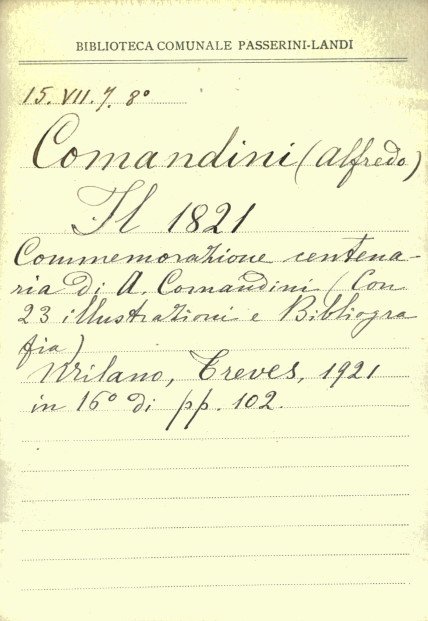 BIBLIOTECA COMUNALE PASSERINI-LANDI
15. VII. 7. 8°
Comandini (Alfredo)
Il 1821
Commemorazione centena-
ria di A. Comandini (Con
23 illustrazioni e Bibliogra
fia)
Milano, Treves, 1921
in 16° di pp. 102.